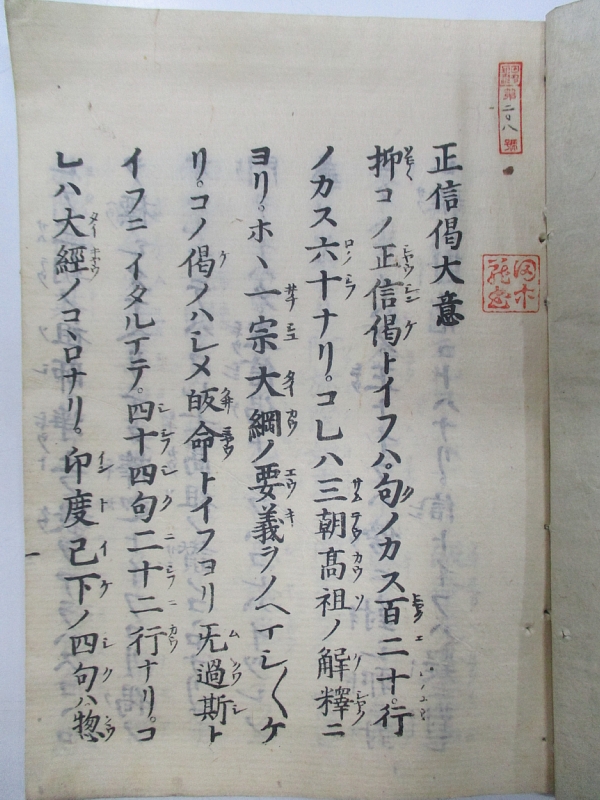 正信偈大意
抑コノ正信偈トイフハ。句ノカス百二十。行
ノカス六十ナリ。コレハ三朝高祖ノ解釋ニ
ヨリ。ホヽ一宗大綱ノ要義ヲノヘマシ〱ケ
リ。コノ偈ノハシメ皈命トイフヨリ无過斯ト
イフニイタルマテ。四十四句二十二行ナリ。コ
レハ大經ノコヽロナリ。印度已下ノ四句ハ惣
第二八號